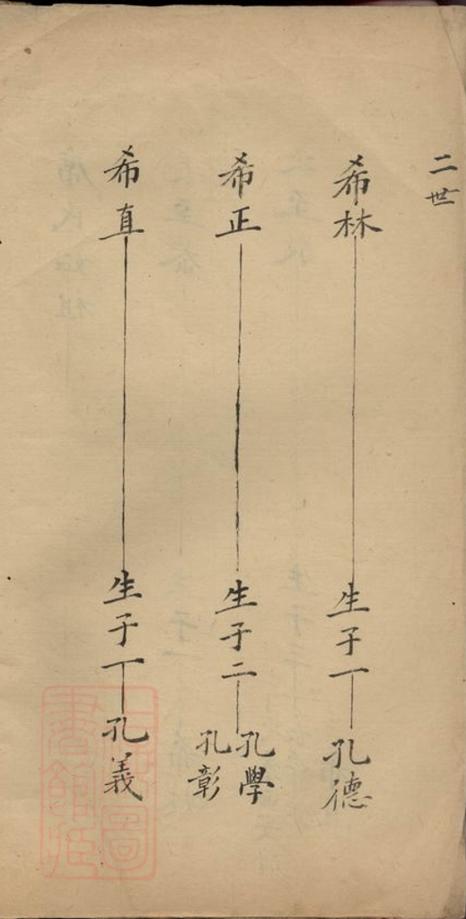 二世
希林
生子一
孔德
希正
生子二
孔學
孔彰
希直
生子一
孔義